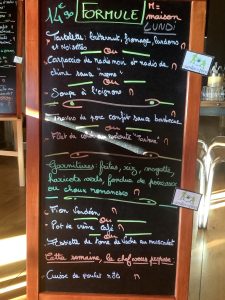 14€90 FORMULE M = maison
LUNDI
Tartelette butternut, fromage, lardons
et noisettes
ou
Carpaccio de radis noir et radis de
chine sauce
ou
Soupe à l'oignons
de porc confit sauce barbecue
ou
Filet de
Garnitures: frites, riz, mogette,
haricots verts, fondue de poireaux
ou choux romanesco
Flan Vendéen
ou
Pot de crème café
ou
Assiette de tome de Vache au muscadet
Cette semaine, le chef vous propose:
Cuisse de poulet rôti